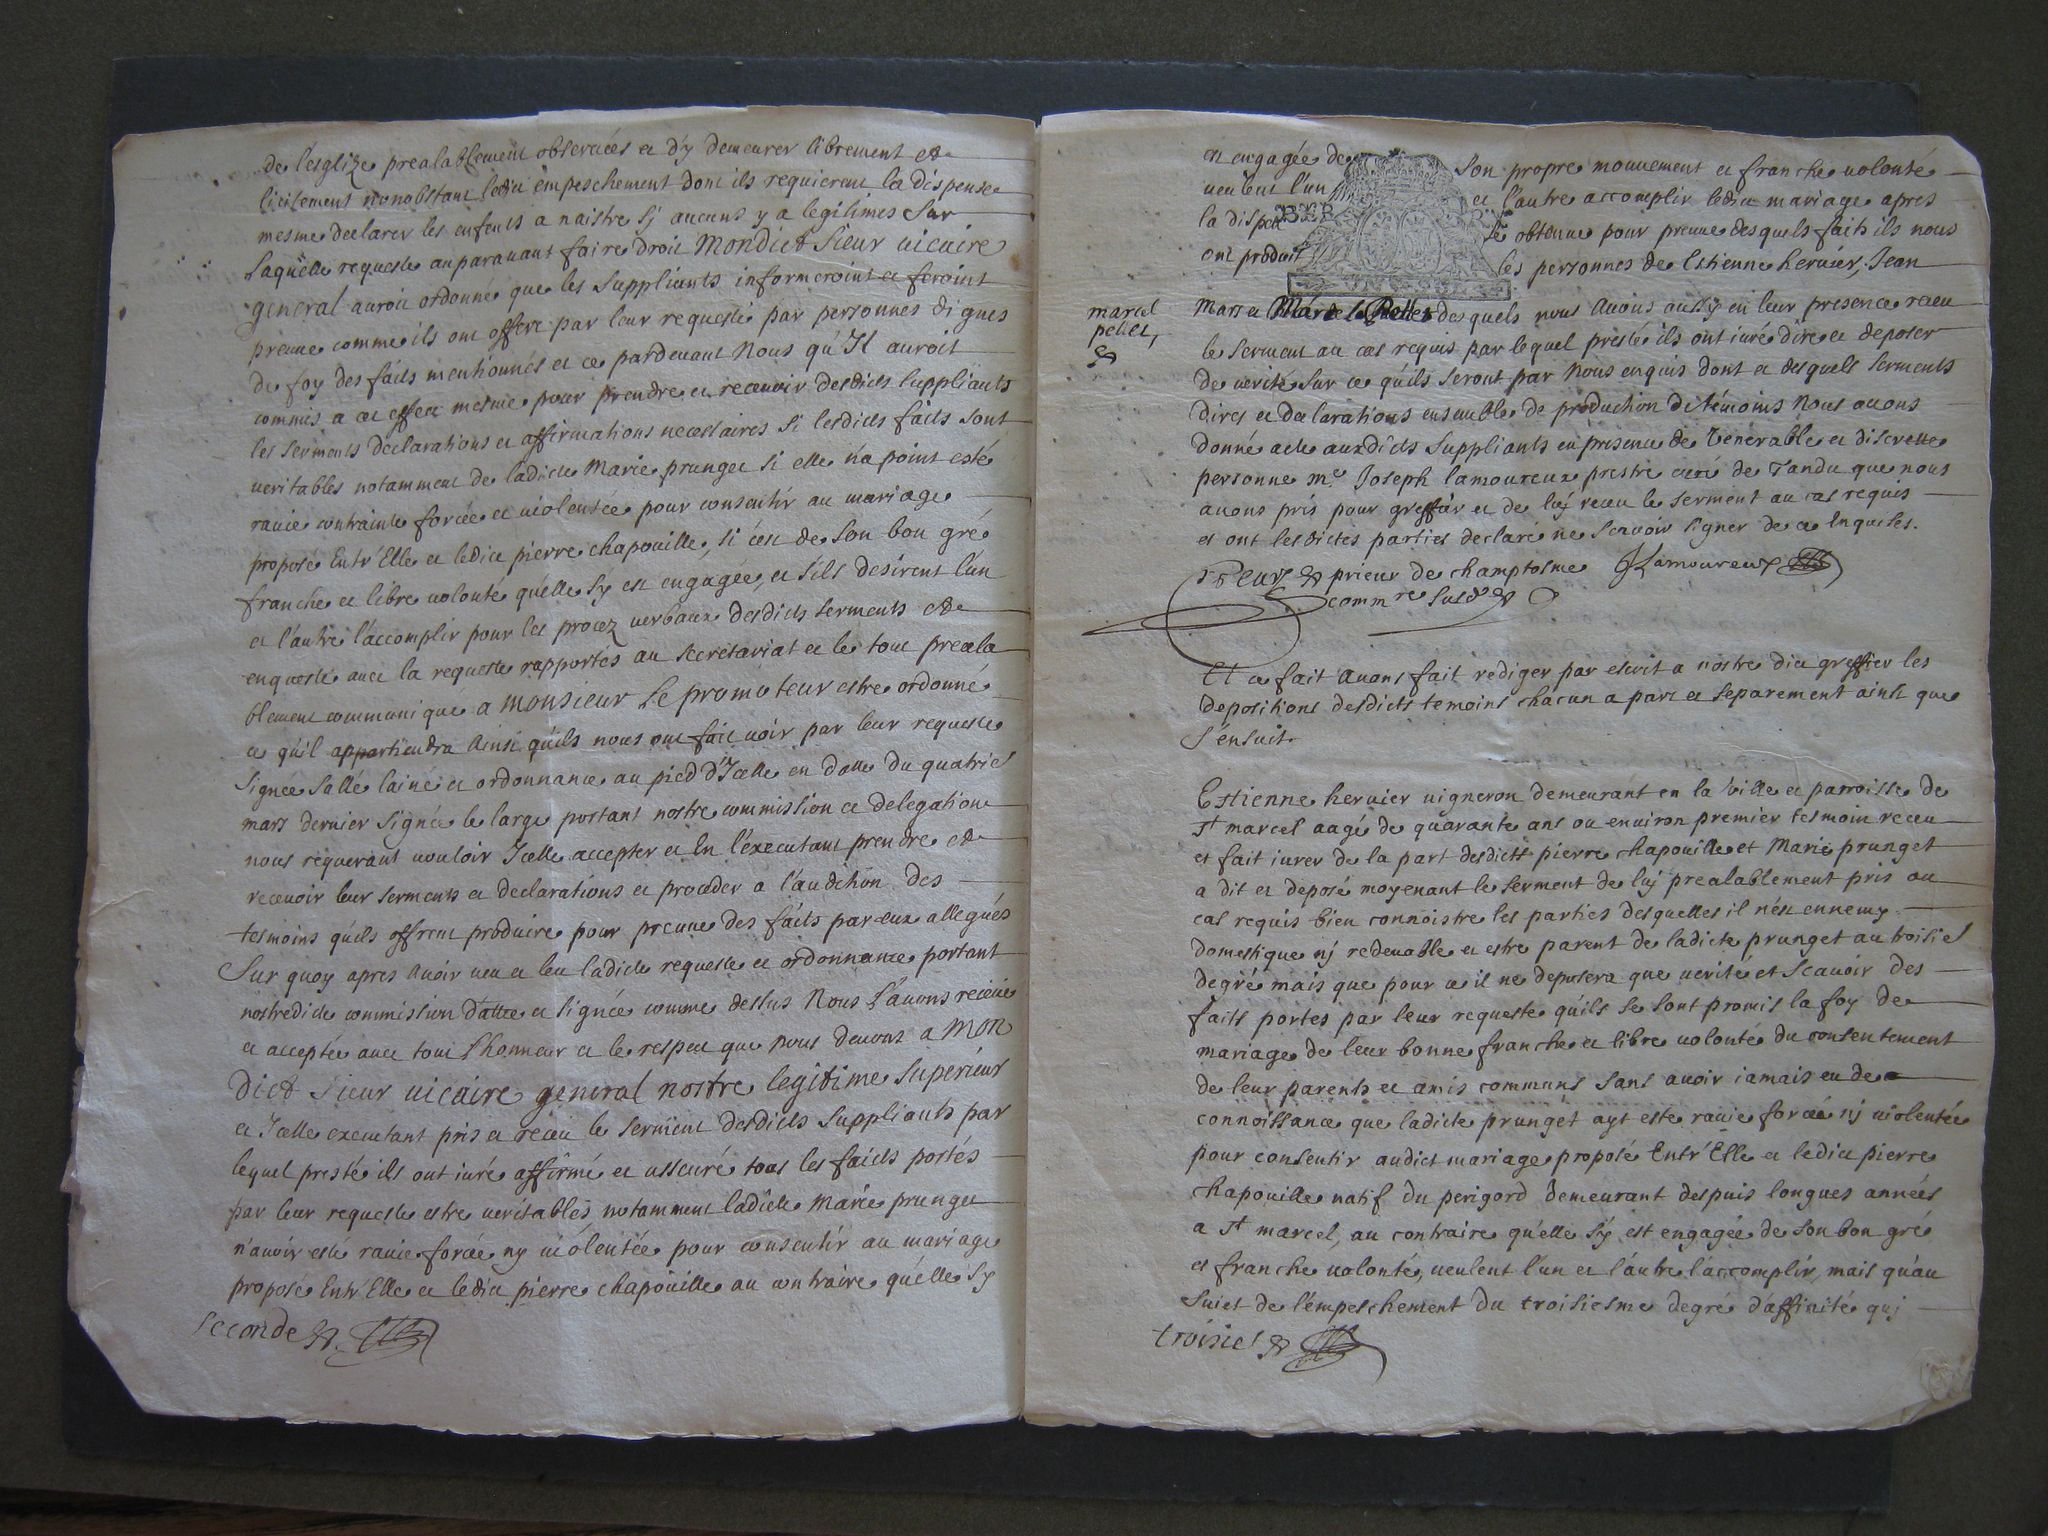 de l'esglize prealablement observées et d'y demeurer librement et
licitement nonobstant ledict empeschement dont ils requierent la dispense
mesme declarer les enfents a naistre sy aucuns y a legitimes Sur
Laquelle requeste auparavant faire droit Mondict Sieur vicaire
general auroit ordonné que les Suppliants informeroint et feroint
preuve comme ils ont offert par leur requeste par personnes dignes
de foy des faits mentionnés et ce pardevant Nous qu'Il auroit
commis a cet effect mesme pour prendre et recevoir desdicts suppliants
les serments declarations et affirmations necessaires si lesdicts faits sont
veritables notamment de ladicte Marie prunget si elle n'a point esté
ravie contrainte forcée et violentée pour consentir au mariage
proposé Entr'Elle et ledict pierre chapouille, si c'est de son bon gré
franche et libre volonté qu'elle s'y est engagée, et s'ils desirent l'un
et l'autre l'accomplir pour les procez verbaux desdicts serments et
enqueste avec la requeste rapportés au secretariat et le tout preala
blement communiqué a Monsieur Le promoteur estre ordonné
ce qu'il appartiendra Ainsi qu'ils nous ont fait voir par leur requeste
Signée Sallé lainé et ordonnance au pied d'Icelle en datte du quatries
mars dernier Signée le large portant nostre commission et delegation
nous requerant vouloir Icelle accepter et En l'executant prendre et
recevoir leur serments et declarations et proceder a l'audition des
tesmoins qu'ils offrent produire pour preuve des faits par eux allegués
Sur quoy apres Avoir veu et leu ladicte requeste et ordonnance portant
nostredicte commission dattée et signée comme dessus Nous L'avons receue
et acceptée avec tout l'honneur et le respect que nous devons a Mon
Dict Sieur vicaire general nostre legitime Superieur
et Icelle executant pris et receu le serment desdicts Suppliants par
lequel presté ils ont iuré affirmé et asseuré tous les faicts portés
par leur requeste estre veritables notamment ladicte Marie prunget
n'avoir esté ravie forcée ny violentée pour consentir au mariage
proposé Entr'Elle et ledict pierre chapouille au contraire qu'elle s'y
seconde
est engagée de son propre mouvement et franche volonté
veulent l'un et l'autre accomplir ledict mariage apres
la dispen se obtenue pour preuve desquels faits ils nous
ont produit les personnes de Estienne hervier, Jean
marcel
pellet,
Mars et Marcel Pellet desquels nous Avons aussy en leur presence receu
le serment au cas requis par lequel presté ils ont iuré dire et deposer
de verité sur ce qu'ils seront par Nous enquis dont et desquels serments
dires et declarations ensemble de production de témoins Nous avons
donné acte auxdicts Suppliants en presence de Venerable et discrette
personne me Joseph lamoureux prestre curé de Tandu que nous
avons pris pour greffier et de luy receu le serment au cas requis
et ont lesdictes parties declaré ne scavoir signer de ce Enquises.
prieur de champtosme JLamoureux
commre susd
Et ce fait avons fait rediger par escrit a nostre dict greffier les
depositions desdicts temoins chacun a part et separement ainsi que
s'ensuit.
Estienne hervier vigneron demeurant en la ville et parroisse de
st marcel aagé de quarante ans ou environ premier tesmoin receu
et fait iurer de la part desdicts pierre chapouille et Marie prunget
a dit et deposé moyenant le serment de luy prealablement pris au
cas requis bien connoistre les parties desquelles il n'est ennemy
domestique nj redevable et estre parent de ladicte prunget au troisies
degré mais que pour ce il ne deposera que verité et scavoir des
faits portes par leur requeste qu'ils se sont promis la foy de
mariage de leur bonne franche et libre volonté du consentement
de leur parents et amis communs sans avoir iamais eu de
connoissance que ladicte prunget ayt este ravie forcée nj violentée
pour consentir audict mariage proposé Entr'Elle et ledict pierre
chapouille natif du perigord demeurant despuis longues années
a st marcel, au contraire qu'elle s'y est engagée de son bon gré
et franche volonté, veulent l'un et l'autre l'accomplir, mais qu'au
suiet de l'empeschement du troisiesme degré d'affinité qui
troisies